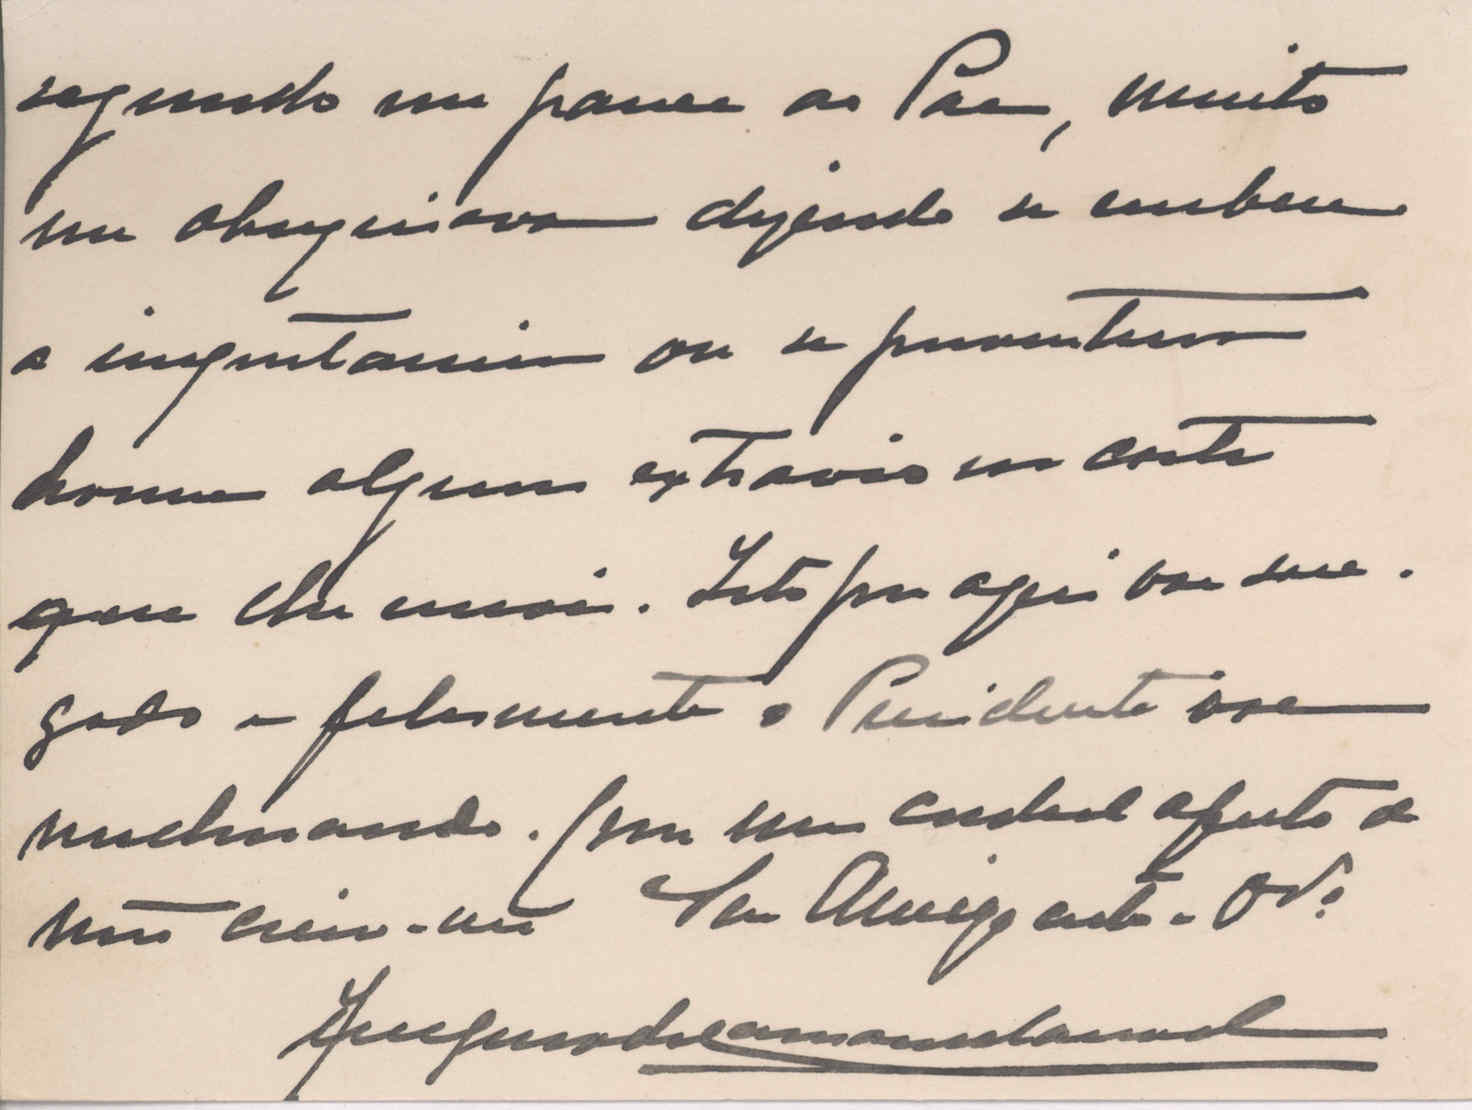 segundo me parece ao Pae, muito
me obsequiava dizendo se recebeu
a importancia ou se porventura
houve algum extravio na carta
que lhe enviei. Isto por aqui vae soce.
gado e felizmente o Presidente vae
melhorando. Com um cordeal affecto de
creia-me Seu Amigo certo e Obdo